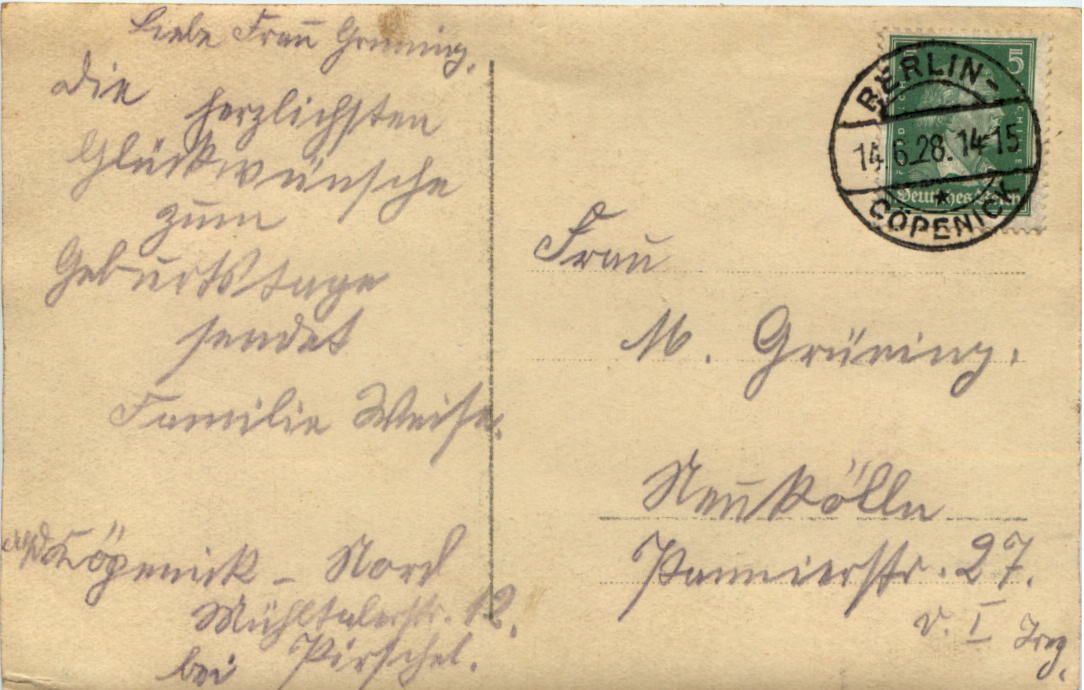 Liebe Frau Grüning,
Die herzlichsten
Glückwünsche
zum
Geburtstage
sendet
Familie Weise.
Cöpenick - Nord
Mühltalerstr. 12.
bei Pirschel.
5
Deutsches Reich
BERLIN-
14.6.28.14-15
CÖPENICK
Frau
M. Grüning.
Neukölln
Pannierstr. 27.
v. I